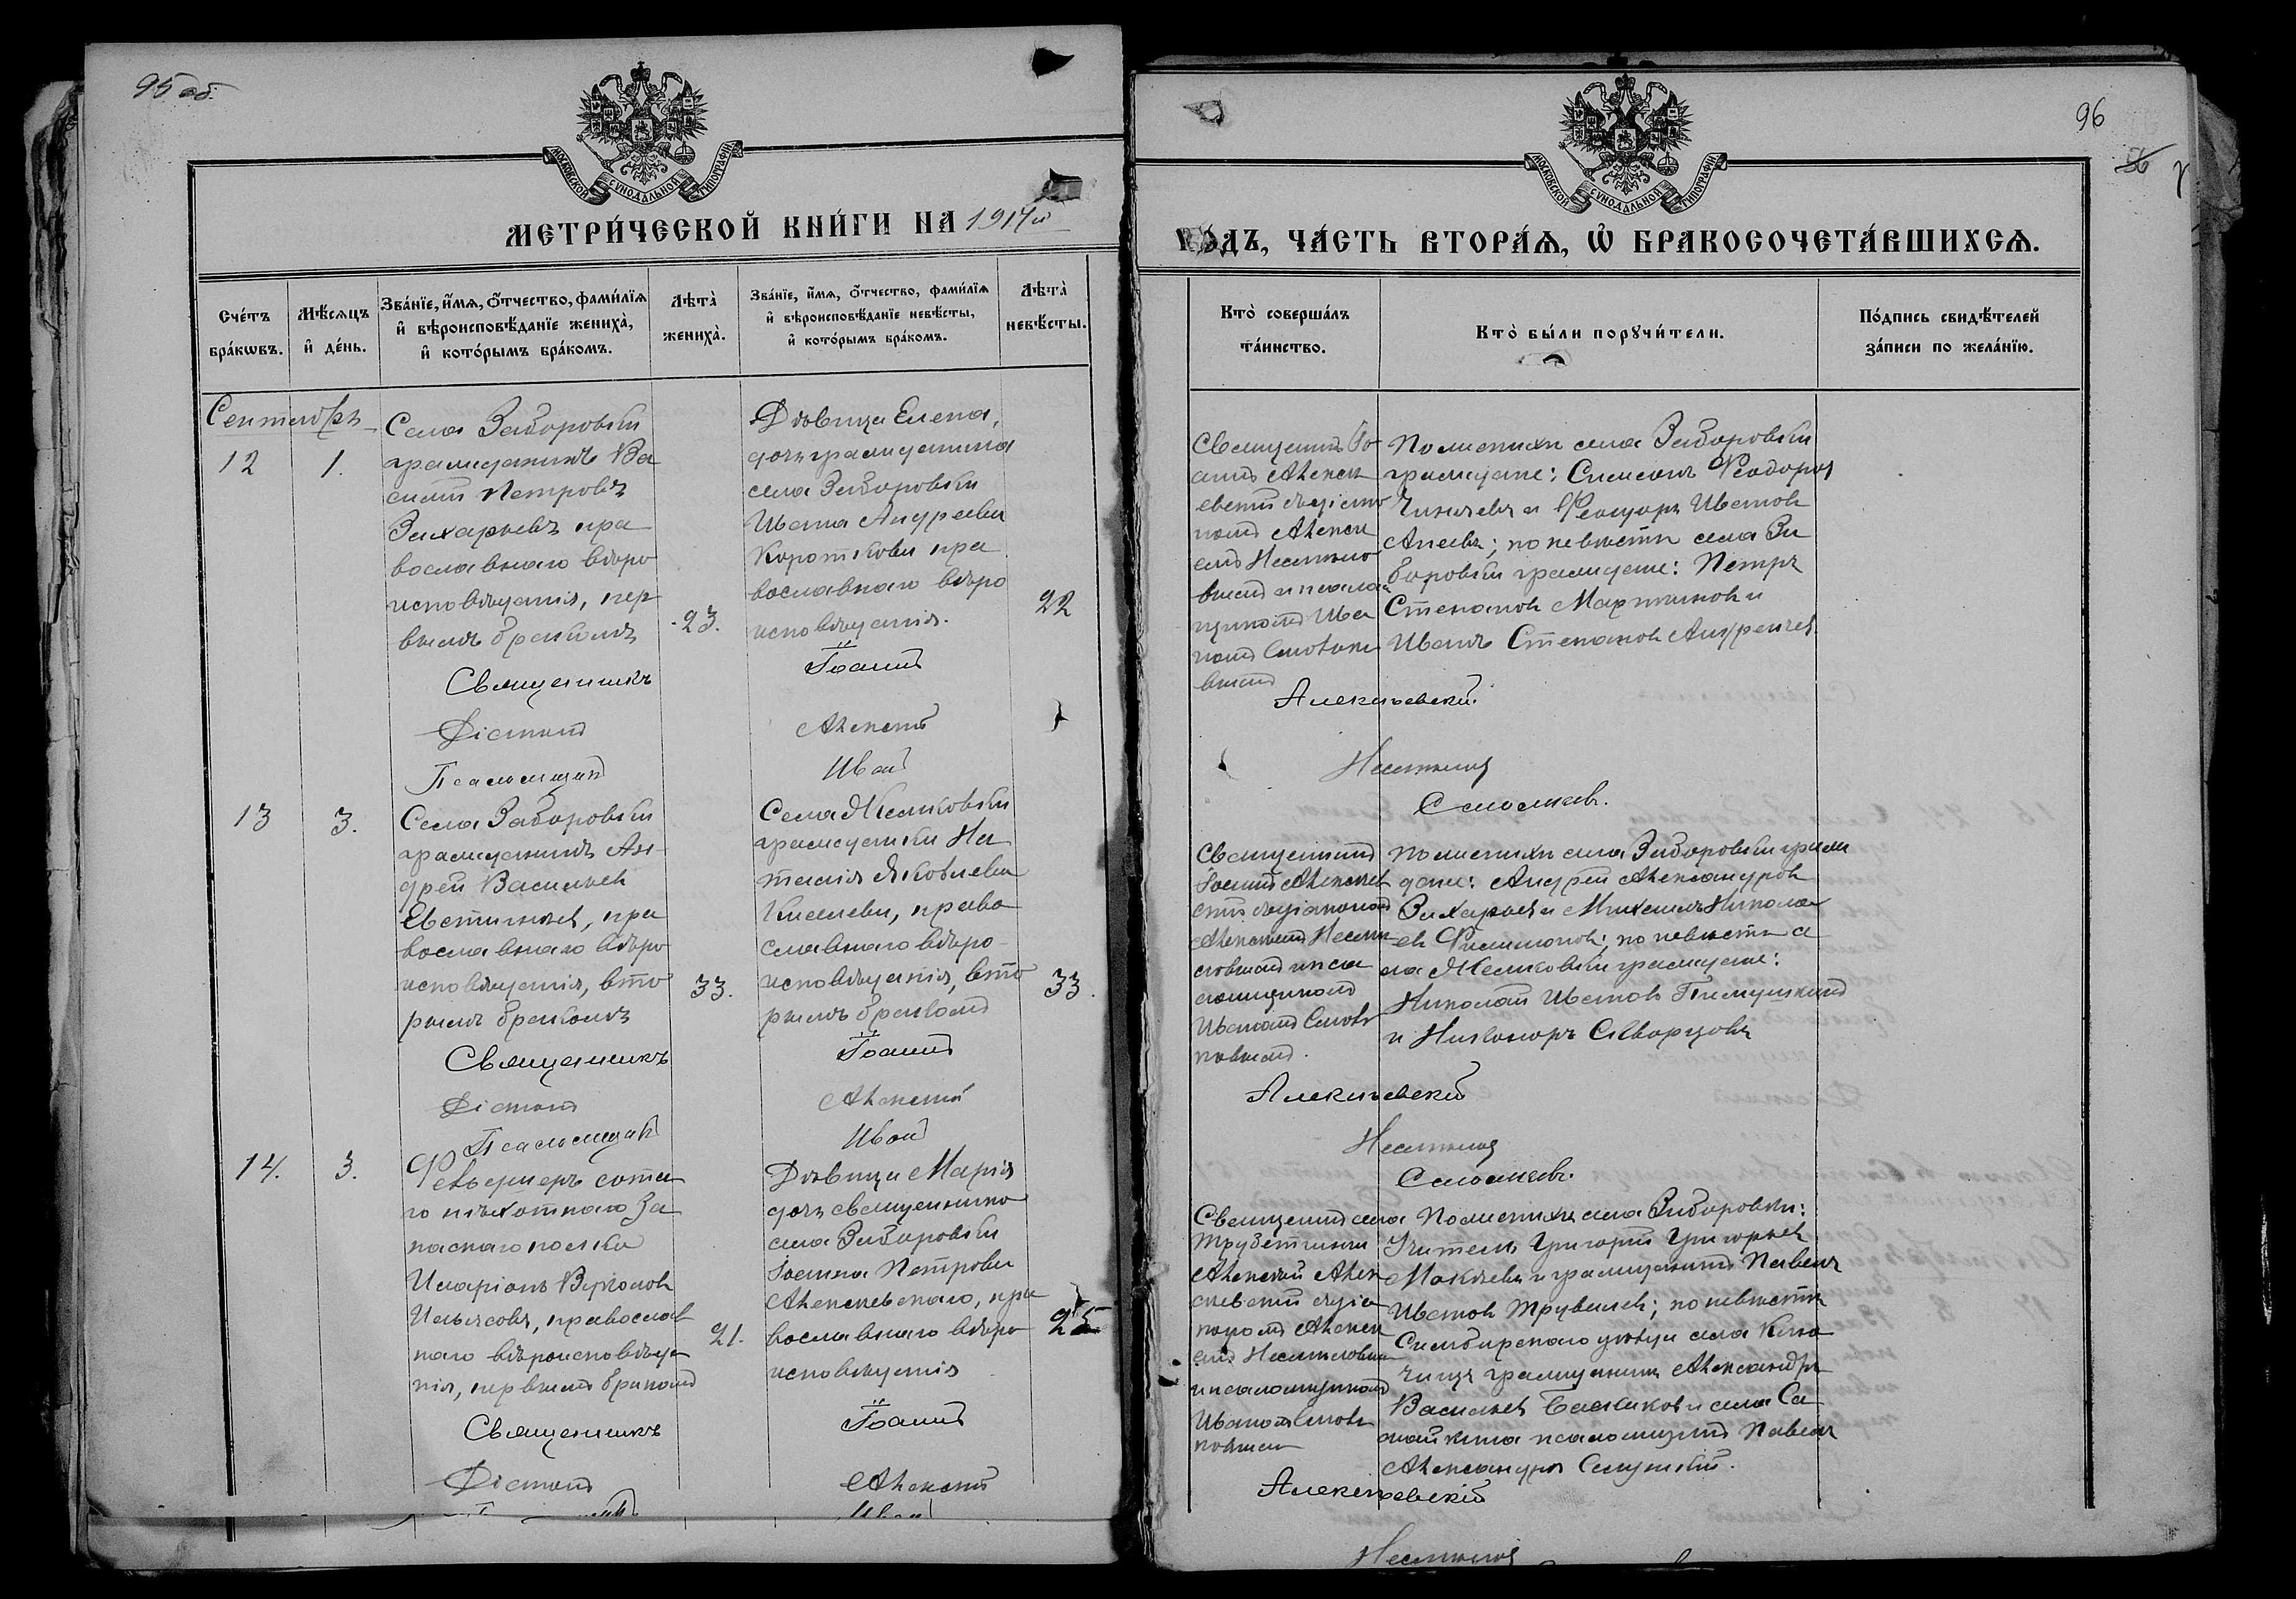 95 об.
МОСКОВСКОЙ СѴНОДАЛЬНОЙ ТИПОГРАФІИ
МЕТРИ́ЧЕСКОЙ КНИ́ГИ НА 1917й
Сче́тъ бра́кѡвъ.
Мѣ́сяцъ и҆ де́нь.
Зва́нїе, и҆́мѧ, ѻ҆́тчество, фами́лїѧ и҆ вѣроисповѣ́данїе жениха̀, и҆ кото́рымъ бра́комъ.
Лѣта̀ жениха̀.
Зва́нїе, и҆́мѧ, ѻ҆́тчество, фами́лїѧ и҆ вѣроисповѣ́данїе невѣ́сты, и҆ кото́рымъ бра́комъ.
Лѣта̀ невѣ́сты.
Сентябрь
12
1.
Села Заборовки
гражданинъ Ва
силій Петровъ
Захарьевъ пра
вославнаго вѣро
исповѣданія, пер
вымъ бракомъ
23.
Дѣвица Елена,
дочь гражданина
села Заборовки
Ивана Андреева
Короткова пра
вославнаго вѣро
исповѣданія.
22
Священникъ Іоаннъ
Діаконъ Алексій
Псаломщикъ Иван
13
3.
Села Заборовки
гражданинъ Ан
дрей Васильев
Евстигнеев, пра
вославнаго вѣро
исповѣданія, вто
рымъ бракомъ
33.
Села Жемковки
гражданка На
талія Яковлева
Киселева, право
славнаго вѣро
исповѣданія, вто
рымъ бракомъ
33.
Священникъ Іоаннъ
Діаконъ Алексій
Псаломщикъ Иван
14.
3.
Фельдшеръ сота
го пѣхотнаго За
паснаго полка
Иларіонъ Вуколов
Ильясовъ, православ
наго вѣроисповѣда
нія, первымъ бракомъ
21.
Дѣвица Марія
дочь священника
села Заборовки
Іоанна Петрова
Алексѣевскаго, пра
вославнаго вѣро
исповѣданія
25
Священникъ Іоаннъ
Діаконъ Алексій
Иван
96
56
МОСКОВСКОЙ СѴНОДАЛЬНОЙ ТИПОГРАФІИ
ГО́ДЪ, ЧА́СТЬ ВТОРА́Ѧ, Ѡ҆ БРАКОСОЧЕТА́ВШИХСѦ.
Кто̀ соверша́лъ та́инство.
Кто̀ бы́ли порꙋчи́тели.
По́дпись свидѣ́телей за́писи по жела́нїю.
Священникъ Іо
аннъ Алексѣ
евскій діако
помъ Алексі
емъ Несмѣло
вымъ и псалом
щикомъ Ива
номъ Смольк
вымъ
По женихѣ села Заборовки
граждане: Симеонъ Ѳеодоров
и Ѳеодоръ Иванов
; по невѣстѣ села За
боровки граждане: Петръ
Степанов Мартынов и
Иванъ Степанов Андреичев
Алексѣевскій.
Несмѣлов
Смолькев.
Священникъ
Іоаннъ Алексѣев
скій діакономъ
Алексіемъ Несмѣ
ловымъ и пса
ломщикомъ
Иваномъ Смоль
новымъ.
По женихѣ села Заборовки граж
дане: Андрей Александров
Захарьев и Михаилъ Никола
ев Филимонов; по невѣстѣ се
ла Жемковки граждане:
Николай Иванов
и Никоноръ Скворцовъ
Алексѣевскій
Несмѣлов
Смолькев.
Священникъ села
Алексій Алек
сѣевскій діа
кономъ Алексі
емъ Несмѣловым
и псаломщикомъ
Иваномъ Смоль
новым
По женихѣ села Заборовки:
Учитель Григорій Григорьев
и гражданинъ Павелъ
Иванов ; по невѣстѣ
Симбирскаго уѣзда села Клю
чищъ гражданинъ Александръ
Васильев и села Са
майкина псаломщикъ Павелъ
Александров
Алексѣевскій
Несмѣлов